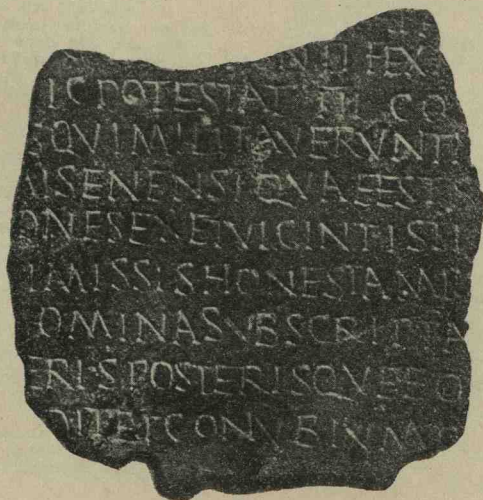 IC POTESTAT III CO
QVI MILITAVERVNT
ISENENSI QVAE EST
ONE SEX ET VIGINTI STI
IMISSIS HONESTA MI
OMINA SVBSCRIPTA
ERIS POSTERISQVE EO
DIT ET CONVBIVM